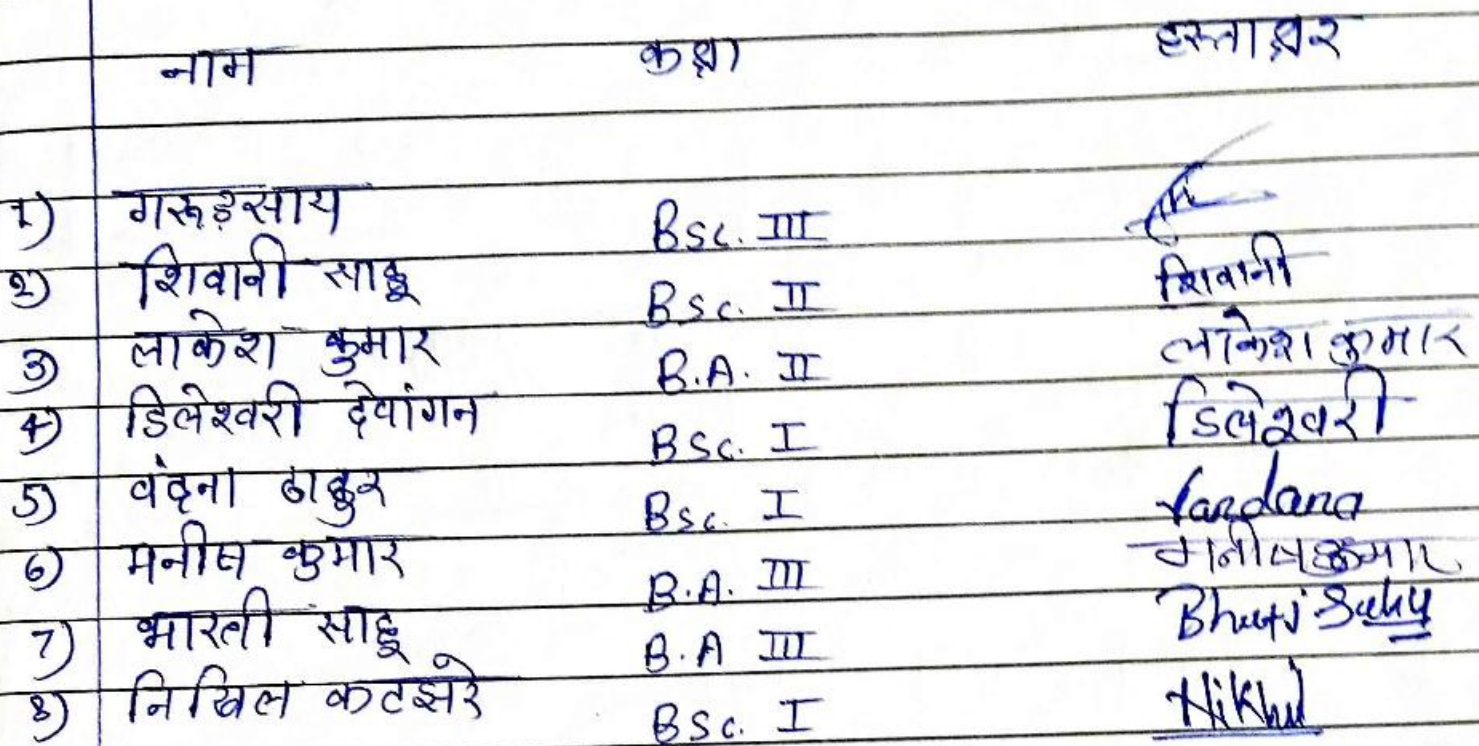 नाम कक्षा हस्ताक्षर
1) गरूड़साय Bsc. III
2) शिवानी साहू Bsc. II शिवानी
3) लाकेश कुमार B.A. II लाकेश कुमार
4) डिलेश्वरी देवांगन Bsc. I डिलेश्वरी
5) वंदना ठाकुर Bsc. I Vandana
6) मनीष कुमार B.A. III मनीष कुमार
7) भारती साहू B.A III Sahu
8) निखिल कटझरे BSc. I Nikhil